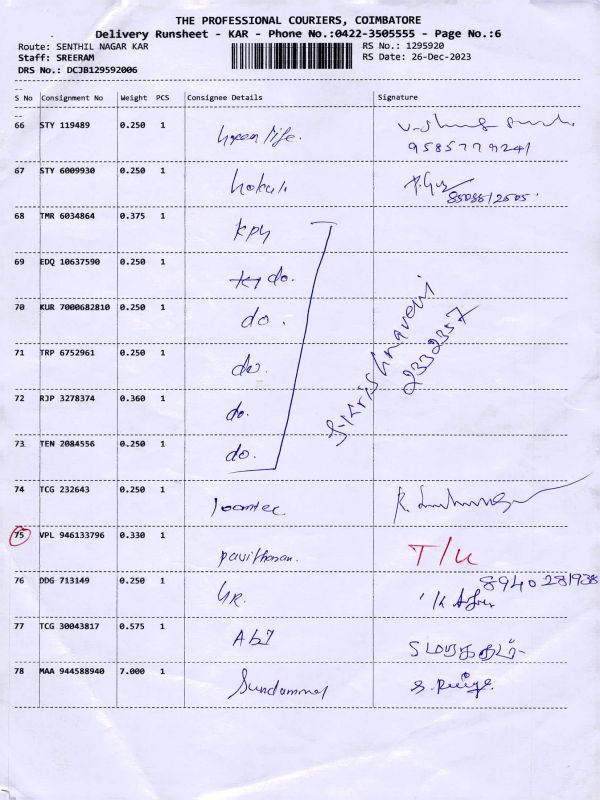 THE PROFESSIONAL COURIERS, COIMBATORE
Delivery Runsheet - KAR - Phone No.:0422-3505555 - Page No.:6
Route: SENTHIL NAGAR KAR
RS No.: 1295920
Staff: SREERAM
RS Date: 26-Dec-2023
DRS No.: DCJB129592006
S No Consignment No Weight PCS Consignee Details Signature
66 STY 119489 0.250 1
9585779241
67 STY 6009930 0.250 1
68 TMR 6034864 0.375 1 kpy
69 EDQ 10637590 0.250 1 do.
70 KUR 7000682810 0.250 1 do.
71 TRP 6752961 0.250 1 do.
72 RJP 3278374 0.360 1 do.
73 TEN 2084556 0.250 1 do.
2332357
74 TCG 232643 0.250 1
75 VPL 946133796 0.330 1 T/U
76 DDG 713149 0.250 1
8940281938
77 TCG 30043817 0.575 1
78 MAA 944588940 7.000 1